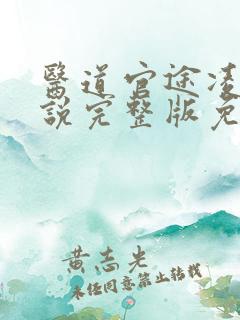 醫道官途凌
說完整版免
黄志光
未经同意禁止转载